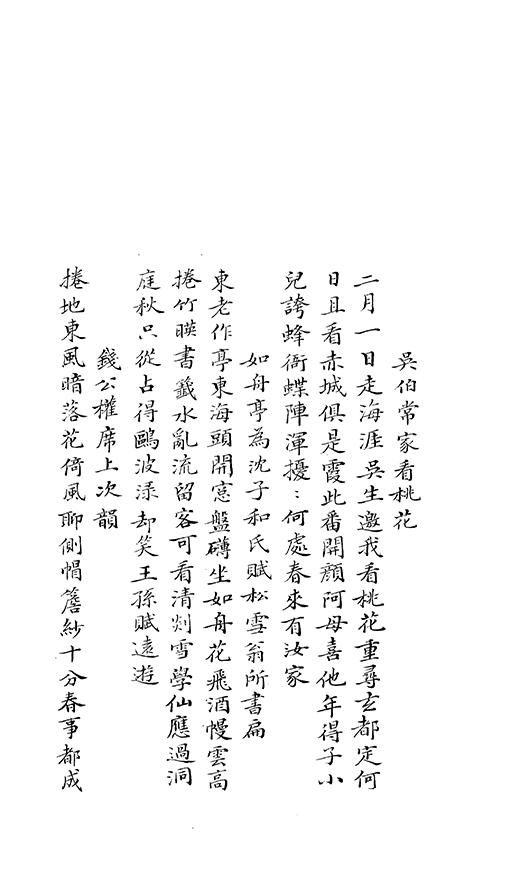 吳伯常家看桃花
二月一日走海涯吳生邀我看桃花重尋玄都定何
日且看赤城俱是霞此番開顏阿母喜他年得子小
兒誇蜂衙蝶陣渾擾〻何處春來有汝家
如舟亭為沈子和氏賦松雪翁所書扁
東老作亭東海頭開窓盤礴坐如舟花飛酒幔雲高
捲竹暎書籤水亂流留客可看清剡雪學仙應過洞
庭秋只從占得鷗波渌却笑王孫賦遠遊
錢公權席上次韻
捲地東風暗落花倚風聊側帽簷紗十分春事都成